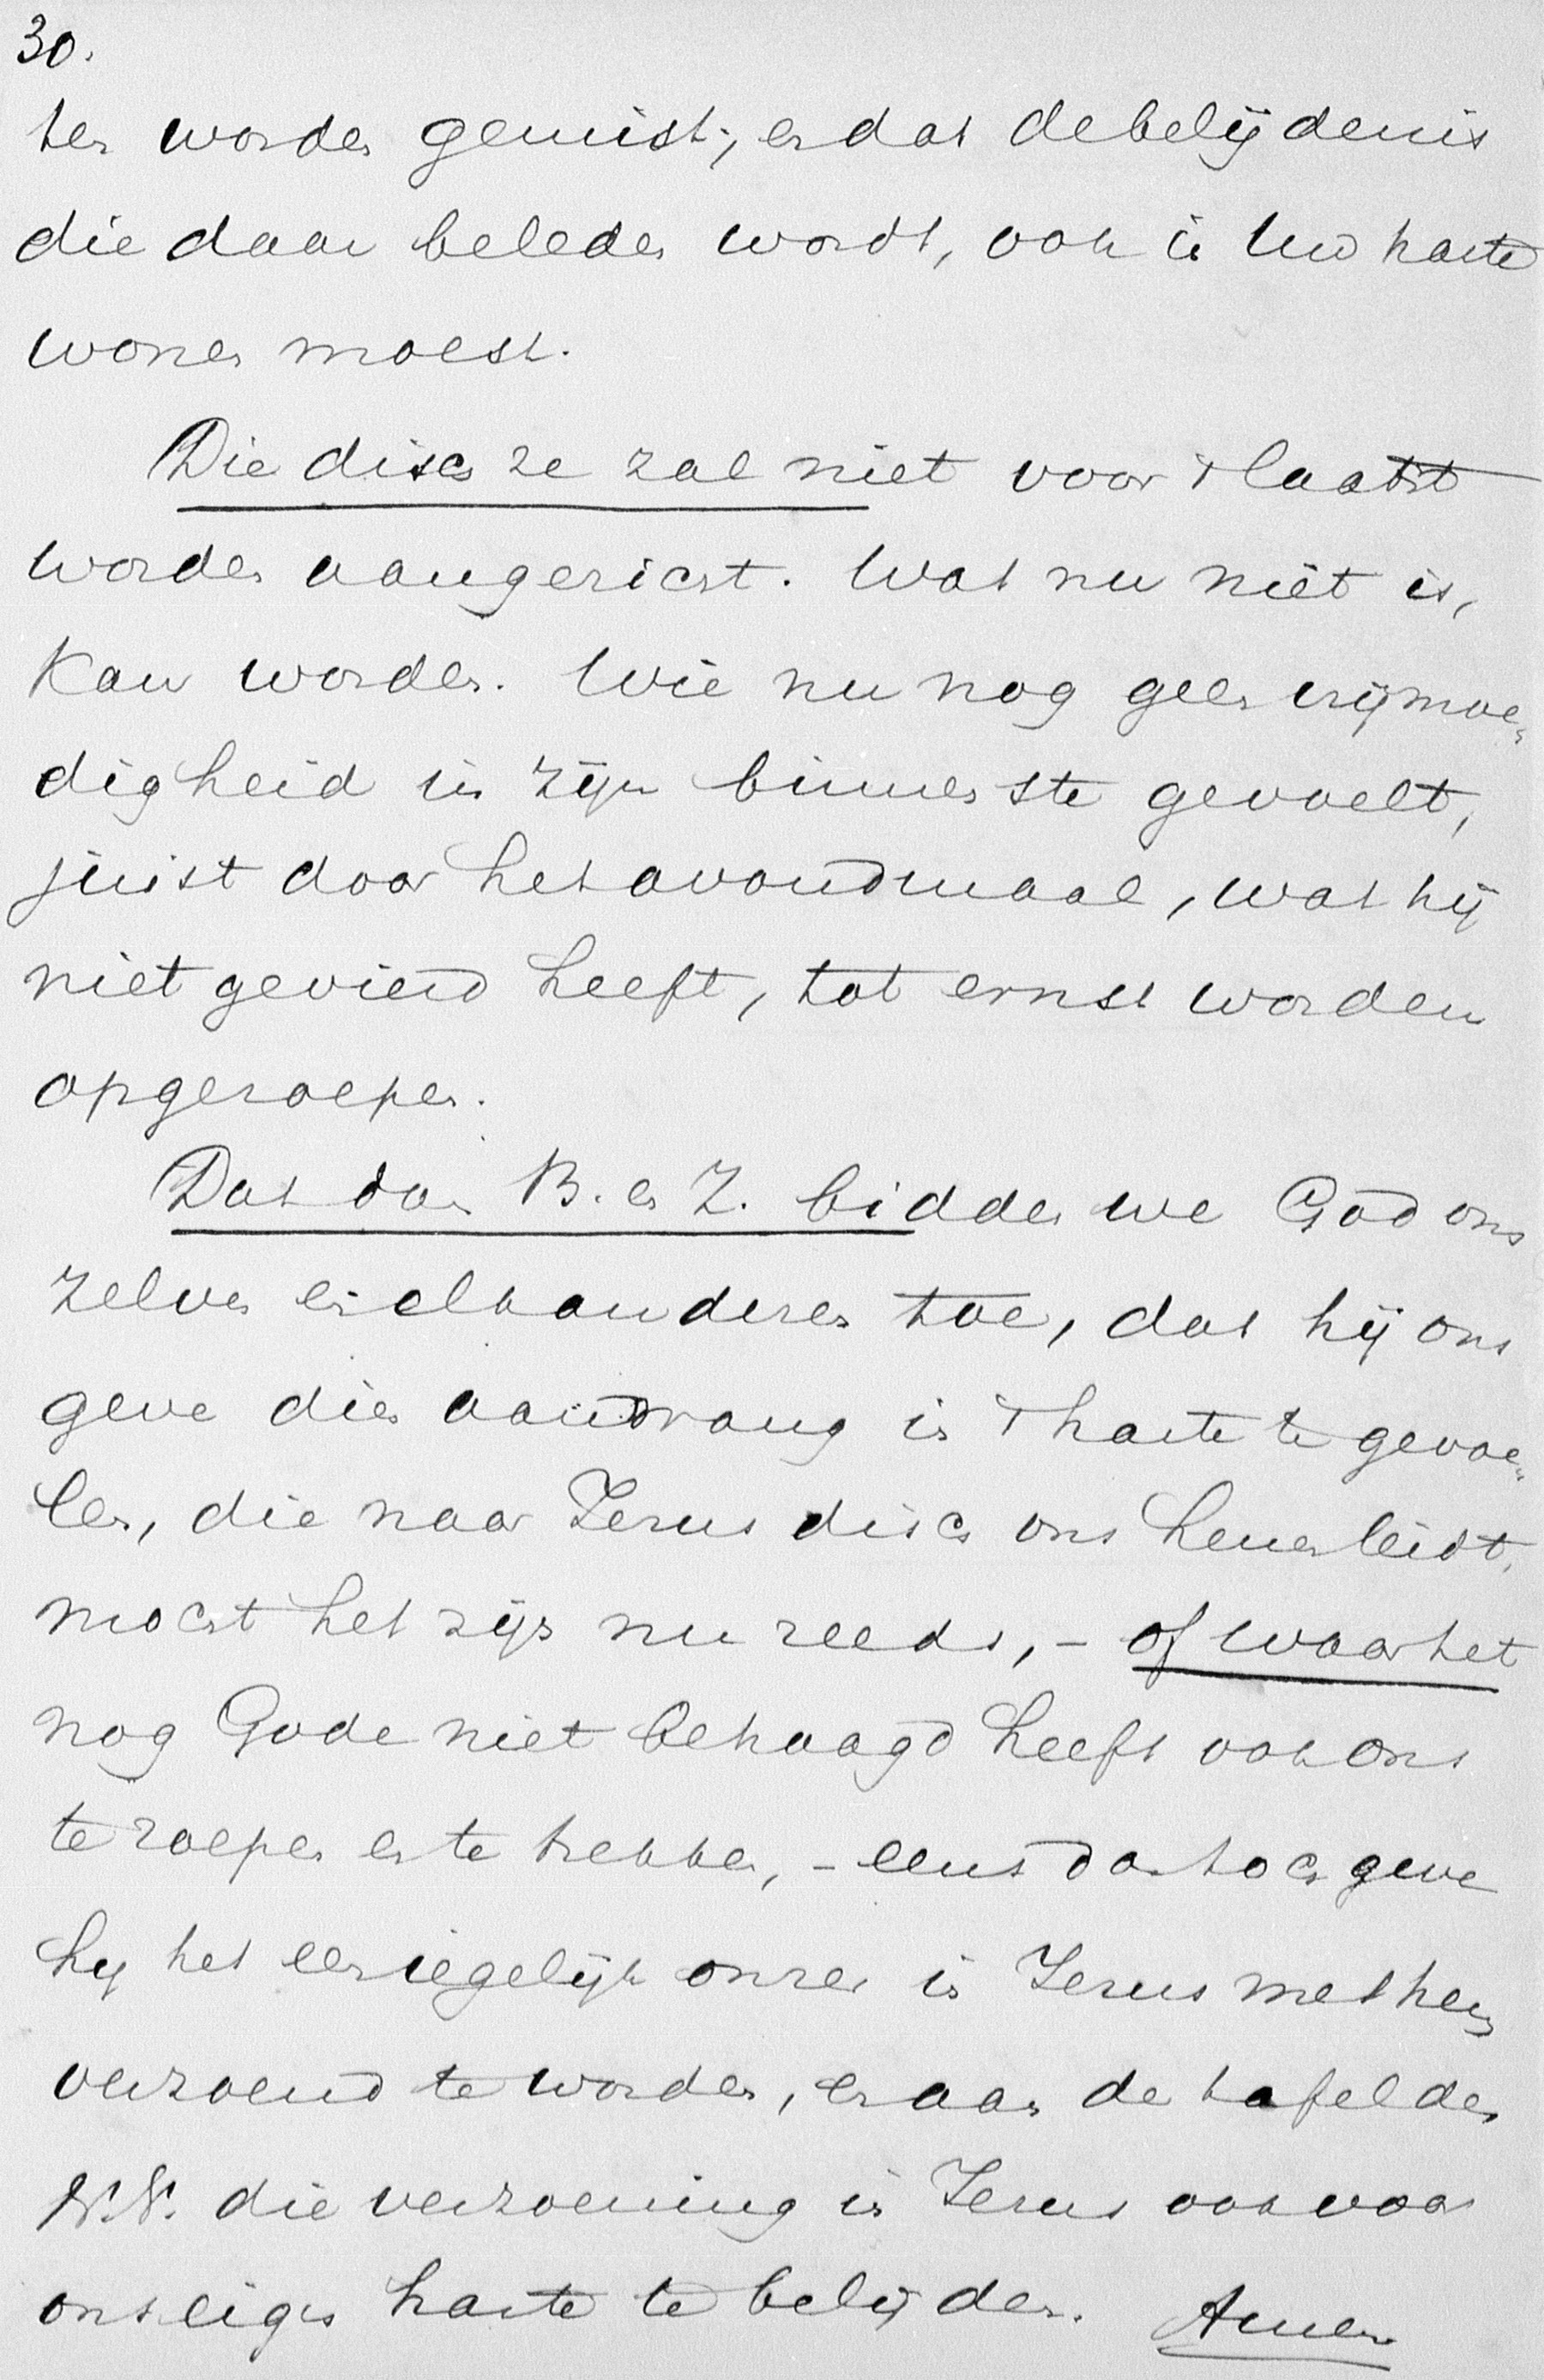 30.
ten worden gemist; en dat de belijdenis
die daar beleden wordt, ook in Uw harte
wonen moest.
Die disch ze zal niet voor 't laatst
worden aangericht. Wat nu niet is,
kan worden. Wie nu nog geen vrijmoe„
digheid in zijn binnenste gevoelt,
juist door het avondmaal, wat hij
niet gevierd heeft, tot ernst worden
opgeroepen.
Dat dan B. en Z. bidden we God ons
zelven en elkanderen toe, dat hij ons
geve dien aandrang in 't harte te gevoe„
len, die naar Jezus disch ons henen leidt,
mocht het zijn nu reeds, – of waar het
nog Gode niet behaagd heeft ook ons
te roepen en te trekken, – eens dan toch geve
hij het een iegelijk onzer in Jezus met hem
verzoend te worden, en aan de tafel des
N.V. die verzoening in Jezus ook voor
ons eigen harte te belijden. Amen